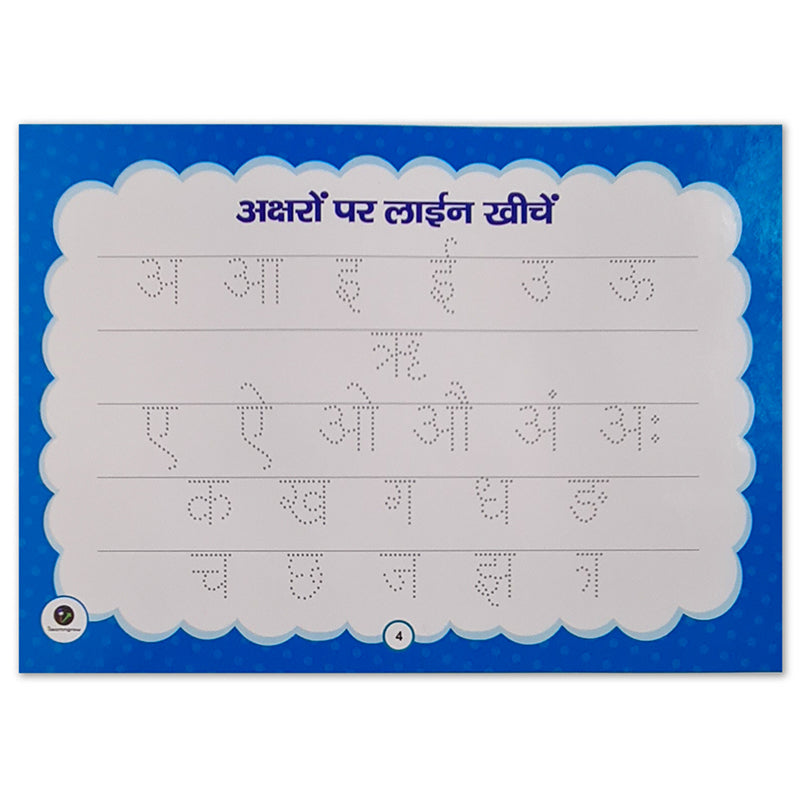 अक्षरों पर लाईन खीचें
अ आ इ ई उ ऊ
ऋ
ए ऐ ओ औ अं अः
क ख ग घ ङ
च छ ज झ ञ
4